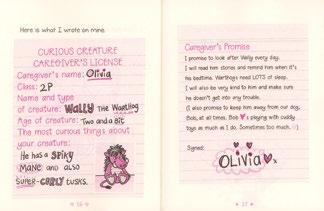 Here is what I wrote on mine.
CURIOUS CREATURE
CAREGIVER'S LICENSE
Caregiver's name: Olivia
Class: 2P
Name and type
of creature: WALLY THE WARTHOG
Age of creature: Two and a bit
The most curious things about
your creature:
HE HAS A SPIKY
MANE AND ALSO
SUPER-CURLY TUSKS.
16
Caregiver's Promise
I promise to look after Wally every day.
I will read him stories and remind him when it's
his bedtime. Warthogs need LOTS of sleep.
I will also be very kind to him and make sure
he doesn't get into any trouble.
I also promise to keep him away from our dog,
Bob, at all times. Bob ♥s playing with cuddly
toys as much as I do. Sometimes too much.
Signed:
OLIVIA x
17